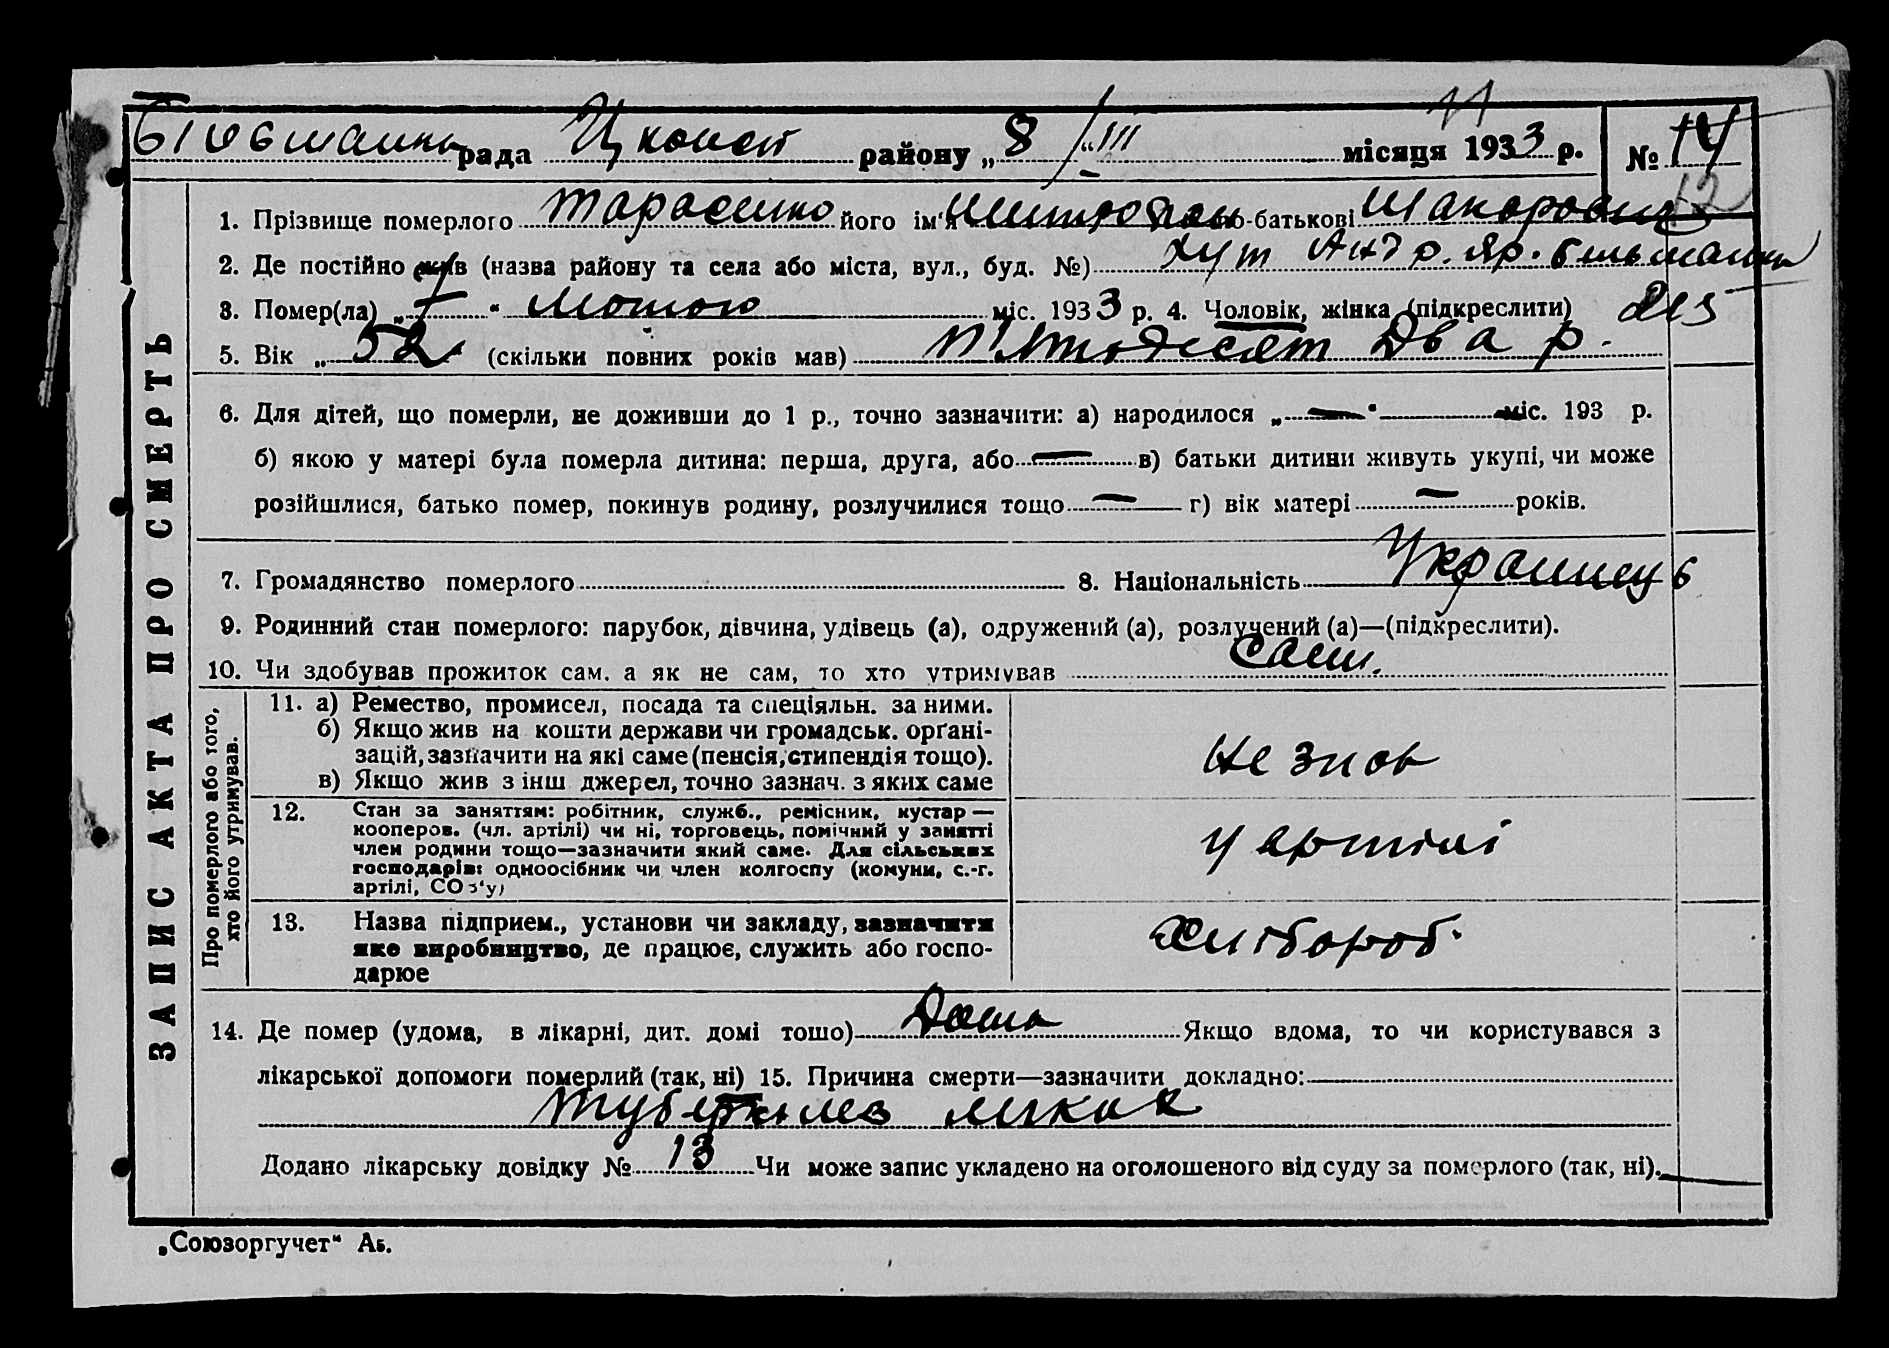 рада район у „ 8 / III місяця 1933 р. № 14
12
1. Прізвище померлого Тарасенко його ім'я по-батькові
2. Де постійно жив (назва району та села або міста, вул., буд. №) хут Андр. Яр.
3. Помер(ла) „ 7 “ міс. 1933 р. 4. Чоловік, жінка (підкреслити)
5. Вік „ 52 “ (скільки повних років мав) Пятдесят два р.
6. Для дітей, що померли, не доживши до 1 р., точно зазначити: а) народилося „ — “ міс. 193 р.
б) якою у матері була померла дитина: перша, друга, або — в) батьки дитини живуть укупі, чи може
розійшлися, батько помер, покинув родину, розлучилися тощо — г) вік матері — років.
7. Громадянство померлого 8. Національність
9. Родинний стан померлого: парубок, дівчина, удівець (а), одружений (а), розлучений (а)—(підкреслити).
10. Чи здобував прожиток сам, а як не сам, то хто утримував сам.
ЗАПИС АКТА ПРО СМЕРТЬ
Про померлого або того,
хто його утримував.
11. а) Ремество, промисел, посада та спеціяльн. за ними.
б) Якщо жив на кошти держави чи громадськ. орґані-
зацій, зазначити на які саме (пенсія, стипендія тощо).
в) Якщо жив з інш джерел, точно зазнач. з яких саме
12. Стан за заняттям: робітник, служб., ремісник, кустар —
кооперов. (чл. артілі) чи ні, торговець, помічний у занятті
член родини тощо—зазначити який саме. Для сільських
господарів: одноосібник чи член колгоспу (комуни, с.-г.
артілі, СОЗ'у)
у артілі
13. Назва підприєм., установи чи закладу, зазначити
яке виробництво, де працює, служить або госпо-
дарює
хлібороб.
14. Де помер (удома, в лікарні, дит. домі тощо) Дома Якщо вдома, то чи користувався з
лікарської допомоги померлий (так, ні) 15. Причина смерти—зазначити докладно:
Додано лікарську довідку № 13 Чи може запис укладено на оголошеного від суду за померлого (так, ні).
„Союзоргучет“ Аб.